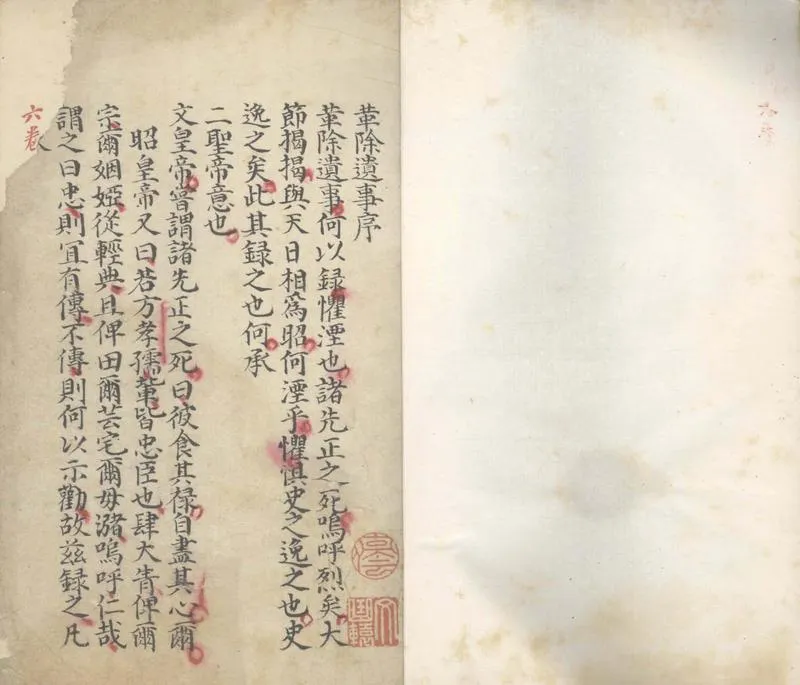 革除遺事序
革除遺事何以録懼湮也諸先正之死嗚呼烈矣大
節揭揭與天日相爲昭何湮乎懼懼史之逸之也史
逸之矣此其録之也何承
二聖帝意也
文皇帝嘗謂諸先正之死曰彼食其禄自盡其心爾
昭皇帝又曰若方孝孺輩皆忠臣也肆大眚俾爾
宗爾姻婭從輕典且俾田爾芸宅爾毋瀦嗚呼仁哉
謂之曰忠則冝有傳不傳則何以示勸故兹録之凡
六卷